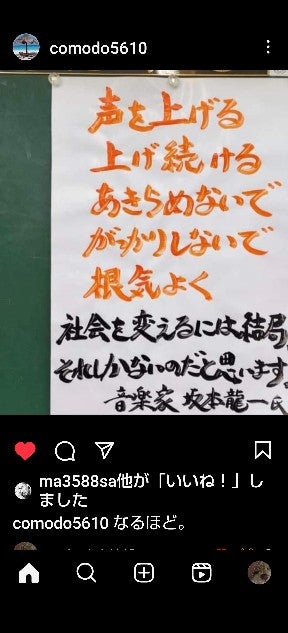 comodo5610
声を上げる
上げ続ける
あきらめないで
がっかりしないで
根気よく
社会を変えるには、結局
それしかないのだと思います
音楽家 坂本龍一氏
ma3588sa他が「いいね！」し
ました
comodo5610 なるほど。